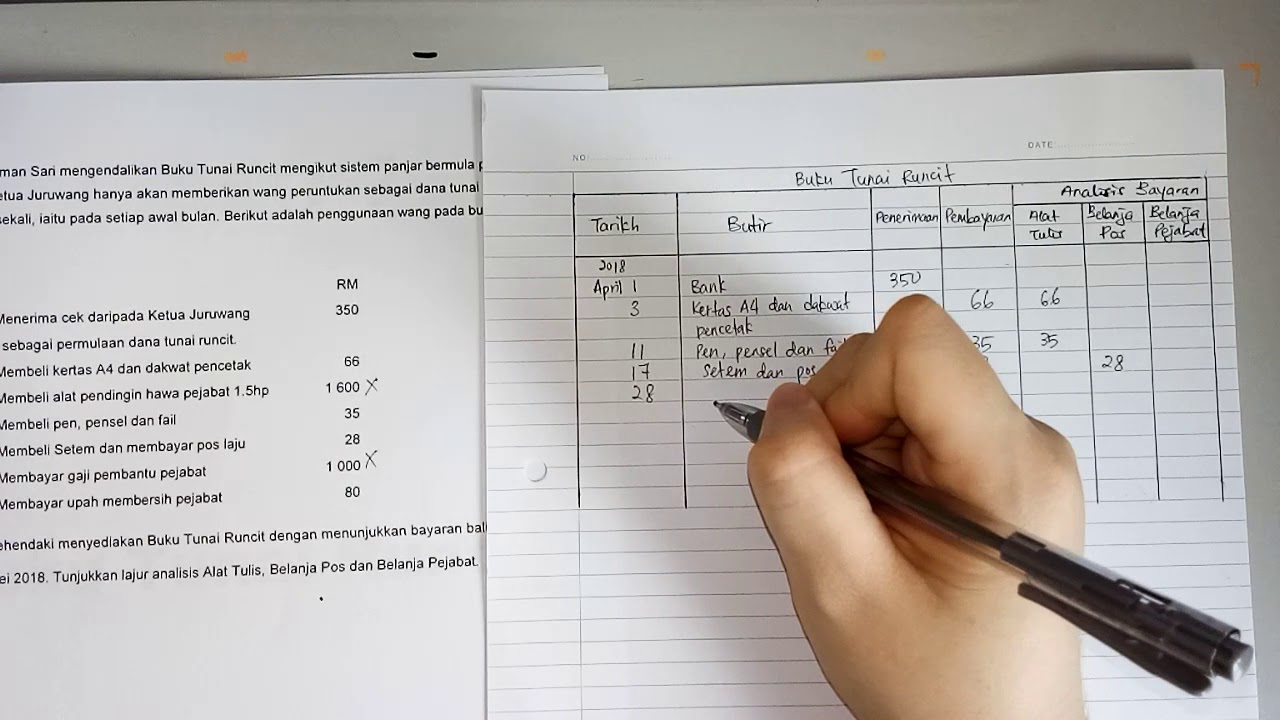 man Sari mengendalikan Buku Tunai Runcit mengikut sistem panjar bermula
etua Juruwang hanya akan memberikan wang peruntukan sebagai dana tunai
sekali, iaitu pada setiap awal bulan. Berikut adalah penggunaan wang pada bu
RM
Menerima cek daripada Ketua Juruwang 350
sebagai permulaan dana tunai runcit.
Membeli kertas A4 dan dakwat pencetak 66
Membeli alat pendingin hawa pejabat 1.5hp 1 600 X
Membeli pen, pensel dan fail 35
Membeli Setem dan membayar pos laju 28
Membayar gaji pembantu pejabat 1 000 X
Membayar upah membersih pejabat 80
ehendaki menyediakan Buku Tunai Runcit dengan menunjukkan bayaran
ei 2018. Tunjukkan lajur analisis Alat Tulis, Belanja Pos dan Belanja Pejabat.
NO: DATE:
Buku Tunai Runcit
Analisis Bayaran
Tarikh Butir Penerimaan Pembayaran Alat Tulis Belanja Pos Belanja Pejabat
2018
April 1 Bank 350
3 Kertas A4 dan dakwat 66 66
pencetak
11 Pen, pensel dan fail 35 35
17 Setem dan pos 28
28